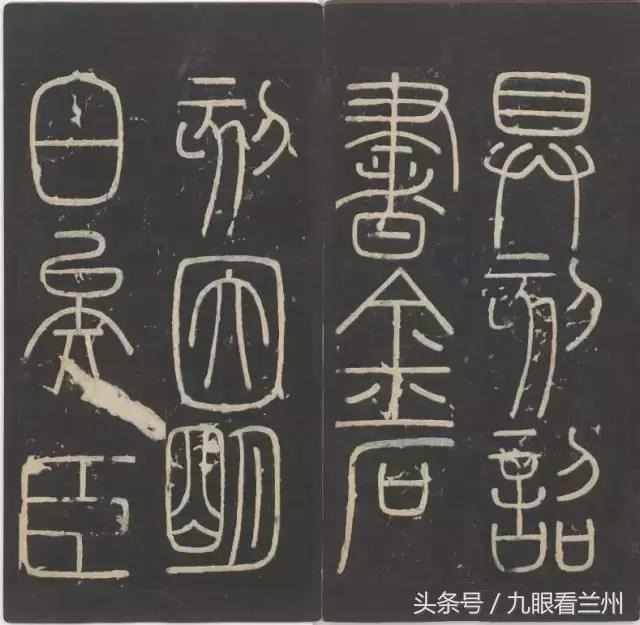 具刻詔
書金石
刻因明
白矣臣
头条号 / 九眼看兰州